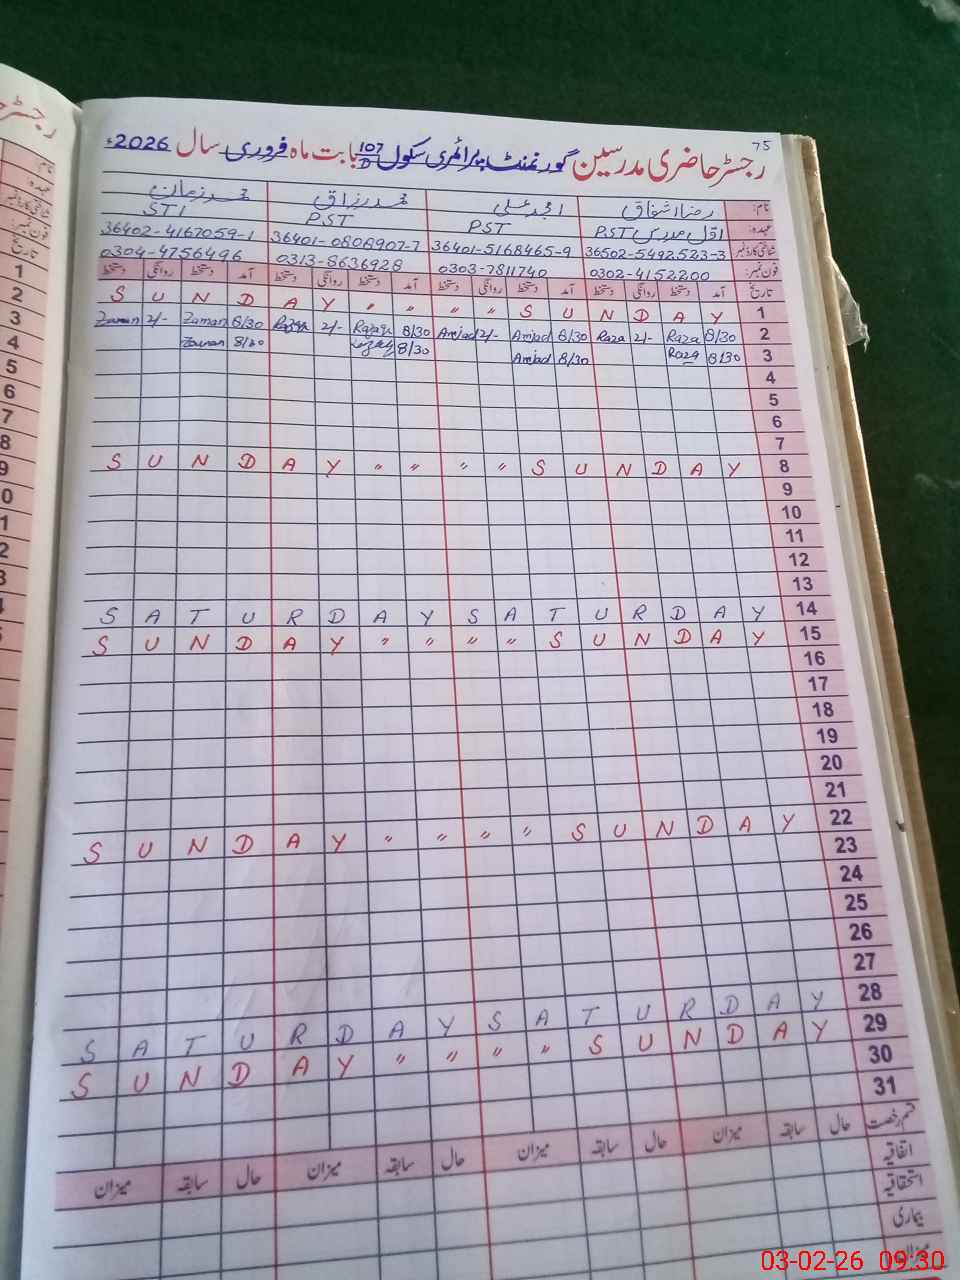 75
رجسٹر حاضری مدرسین گورنمنٹ پرائمری سکول 107/D بابت ماہ فروری سال 2026ء
نام: رضا اشفاق امجد علی محمد رزاق محمد زمان
عہدہ: اول مدرس PST PST PST STI
شناختی کارڈ نمبر 36502-5492523-3 36401-5168465-9 36401-0808907-7 36402-4167059-1
فون نمبر: 0302-4152200 0303-7811740 0313-8636928 0304-4756496
تاریخ آمد دستخط روانگی دستخط آمد دستخط روانگی دستخط آمد دستخط روانگی دستخط آمد دستخط روانگی دستخط
S U N D A Y " " " " S U N D A Y 1
Zaman 2/- Zaman 8/30 Razaq 2/- Razaq 8/30 Amjad 2/- Amjad 8/30 Raza 2/- Raza 8/30 2
Zaman 8/30 8/30 Amjad 8/30 Raza 8/30 3
4
5
6
7
S U N D A Y " " " " S U N D A Y 8
9
10
11
12
13
S A T U R D A Y S A T U R D A Y 14
S U N D A Y " " " " S U N D A Y 15
16
17
18
19
20
21
S U N D A Y " " " " S U N D A Y 22
23
24
25
26
27
S A T U R D A Y S A T U R D A Y 28
S U N D A Y " " " " S U N D A Y 29
30
31
قسم رخصت حال سابقہ میزان حال سابقہ میزان حال سابقہ میزان حال سابقہ میزان
اتفاقیہ
استحقاقیہ
بیماری
میزان
رجسٹر
نام:
عہدہ:
شناختی کارڈ نمبر
فون نمبر:
تاریخ
1
2
3
4
5
6
7
8
9
0
1
2
3
03-02-26 09:30